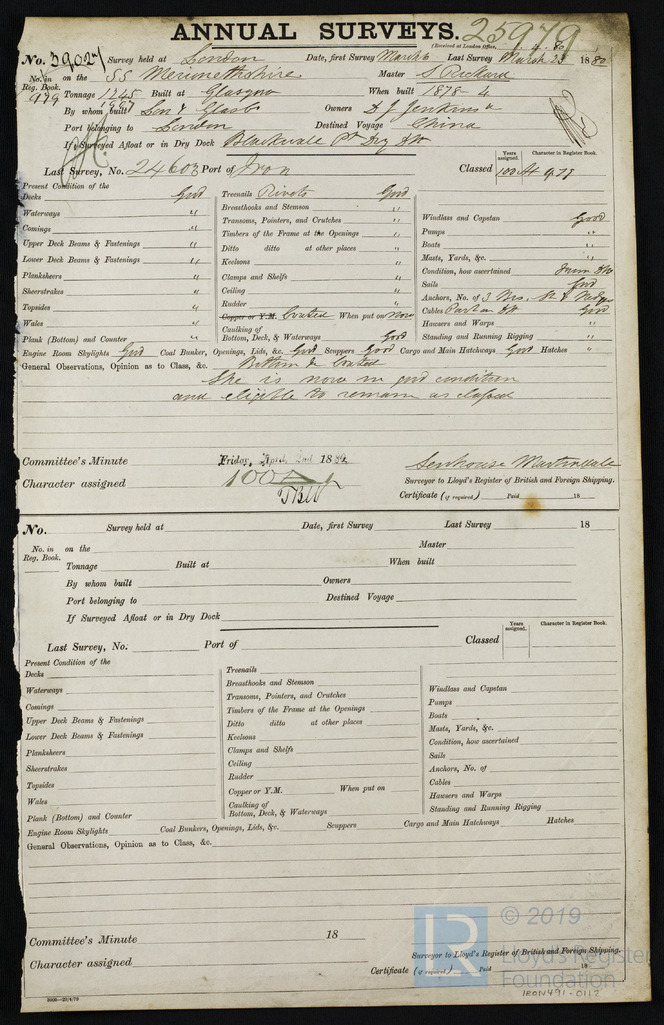 ANNUAL SURVEYS. 25979
(Received at London Office,
No. 39027 Survey held at London Date, first Survey March 6 Last Survey March 23 1880
No. in Reg. Book. 979 on the SS Merionethshire Master S Rickard
Tonnage 1245 Built at Glasgow When built 1878-4
1997
By whom built Lon & Glasb Owners D J Jenkins
Port belonging to London Destined Voyage China
If Surveyed Afloat or in Dry Dock Blackwale Pt Dry Dk
Last Survey, No. 24603 Port of Iron Classed Years assigned. 100 A1 Character in Register Book. 9.78
Present Condition of the
Decks Good Treenails Rivets Good
Waterways " Breasthooks and Stemson " Windlass and Capstan Good
Comings " Transoms, Pointers, and Crutches " Pumps "
Upper Deck Beams & Fastenings " Timbers of the Frame at the Openings " Boats "
Lower Deck Beams & Fastenings " Ditto ditto at other places " Masts, Yards, &c. "
Planksheers " Keelsons " Condition, how ascertained
Sheerstrakes " Clamps and Shelfs " Sails Good
Topsides " Ceiling " Anchors, No. of 3 Brs, St &
Wales " Rudder " Cables Good
Copper or Y.M. Coated When put on Now Hawsers and Warps "
Plank (Bottom) and Counter " Caulking of Bottom, Deck, & Waterways Good Standing and Running Rigging "
Engine Room Skylights Good Coal Bunker, Openings, Lids, &c. Good Scuppers Good Cargo and Main Hatchways Good Hatches "
General Observations, Opinion as to Class, &c. Bottom & Coated
She is now in good condition
and eligible to remain as classed
Committee's Minute Friday, April 2nd 1880
Senhouse Martindale
Character assigned 100A1
Surveyor to Lloyd's Register of British and Foreign Shipping.
Certificate (if required) Paid 18
No. Survey held at Date, first Survey Last Survey 18
No. in Reg. Book. on the Master
Tonnage Built at When built
By whom built Owners
Port belonging to Destined Voyage
If Surveyed Afloat or in Dry Dock
Last Survey, No. Port of Classed Years assigned. Character in Register Book.
Present Condition of the
Decks Treenails
Waterways Breasthooks and Stemson Windlass and Capstan
Comings Transoms, Pointers, and Crutches Pumps
Upper Deck Beams & Fastenings Timbers of the Frame at the Openings Boats
Lower Deck Beams & Fastenings Ditto ditto at other places Masts, Yards, &c.
Planksheers Keelsons Condition, how ascertained
Sheerstrakes Clamps and Shelfs Sails
Topsides Ceiling Anchors, No. of
Wales Rudder Cables
Copper or Y.M. When put on Hawsers and Warps
Plank (Bottom) and Counter Caulking of Bottom, Deck, & Waterways Standing and Running Rigging
Engine Room Skylights Coal Bunkers, Openings, Lids, &c. Scuppers Cargo and Main Hatchways Hatches
General Observations, Opinion as to Class, &c.
Committee's Minute 18
Character assigned
Surveyor to Lloyd's Register of British and Foreign Shipping.
Certificate (if required) Paid 18
LR © 2019
Lloyd's Register
Foundation
IRON491-0112